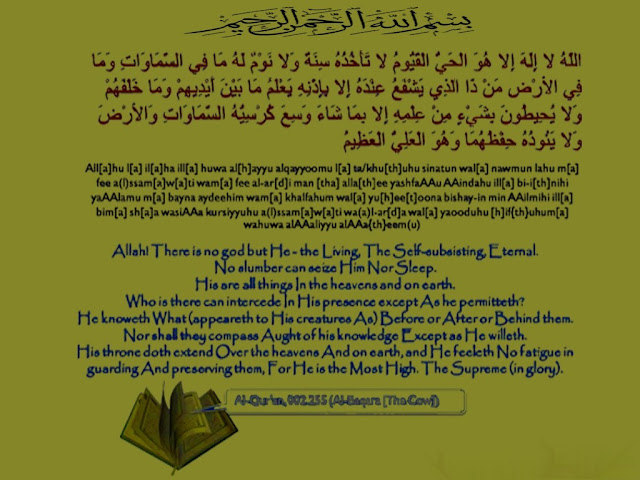 بسم الله الرحمن الرحيم
اللّهُ لا إلهَ إلا هُوَ الحَيُّ القَيُّومُ لا تَأخُذُهُ سِنَةٌ وَلا نَوْمٌ لَهُ مَا فِي السَّمَاوَاتِ وَمَا
فِي الأرْضِ مَنْ ذَا الذِي يَشْفَعُ عِنْدَهُ إلا بِإذْنِهِ يَعْلَمُ مَا بَيْنَ أيْدِيهِمْ وَمَا خَلْفَهُمْ
وَلا يُحِيطُونَ بِشَيْءٍ مِنْ عِلمِهِ إلا بِمَا شَاءَ وَسِعَ كُرْسِيُّهُ السَّمَاوَاتِ وَالأرْضَ
وَلا يَئُودُهُ حِفْظُهُمَا وَهُوَ العَلِيُّ العَظِيمُ
All[a]hu l[a] il[a]ha ill[a] huwa al[h]ayyu alqayyoomu l[a] ta/khu[th]uhu sinatun wal[a] nawmun lahu m[a]
fee a(l)ssam[a]w[a]ti wam[a] fee al-ar[d]i man [tha] alla[th]ee yashfaAAu AAindahu ill[a] bi-i[th]nihi
yaAAlamu m[a] bayna aydeehim wam[a] khalfahum wal[a] yu[h]ee[t]oona bishay-in min AAilmihi ill[a]
bim[a] sh[a]a wasiAAa kursiyyuhu a(l)ssam[a]w[a]ti wa(a)l-ar[d]a wal[a] yaooduhu [h]if{th}uhum[a]
wahuwa alAAaliyyu alAAa{th}eem(u)
Allah! There is no god but He - the Living, The Self-subsisting, Eternal.
No slumber can seize Him Nor Sleep.
His are all things In the heavens and on earth.
Who is there can intercede In His presence except As he permitteth?
He knoweth What (appeareth to His creatures As) Before or After or Behind them.
Nor shall they compass Aught of his knowledge Except as He willeth.
His throne doth extend Over the heavens And on earth, and He feeleth No fatigue in
guarding And preserving them, For He is the Most High. The Supreme (in glory).
Al-Qur'an, 002.255 (Al-Baqara [The Cow])